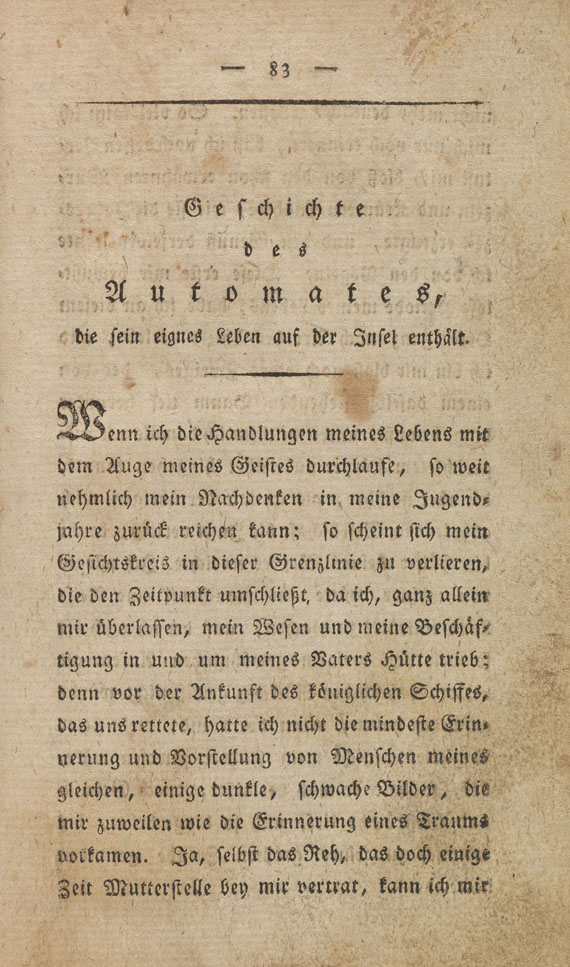 — 83 —
Geschichte
des
Automates,
die sein eignes Leben auf der Insel enthält.
Wenn ich die Handlungen meines Lebens mit
dem Auge meines Geistes durchlaufe, so weit
nehmlich mein Nachdenken in meine Jugend-
jahre zurück reichen kann; so scheint sich mein
Gesichtskreis in dieser Grenzlinie zu verlieren,
die den Zeitpunkt umschließt, da ich, ganz allein
mir überlassen, mein Wesen und meine Beschäf-
tigung in und um meines Vaters Hütte trieb;
denn vor der Ankunft des königlichen Schiffes,
das uns rettete, hatte ich nicht die mindeste Erin-
nerung und Vorstellung von Menschen meines
gleichen, einige dunkle, schwache Bilder, die
mir zuweilen wie die Erinnerung eines Traums
vorkamen. Ja, selbst das Reh, das doch einige
Zeit Mutterstelle bey mir vertrat, kann ich mir